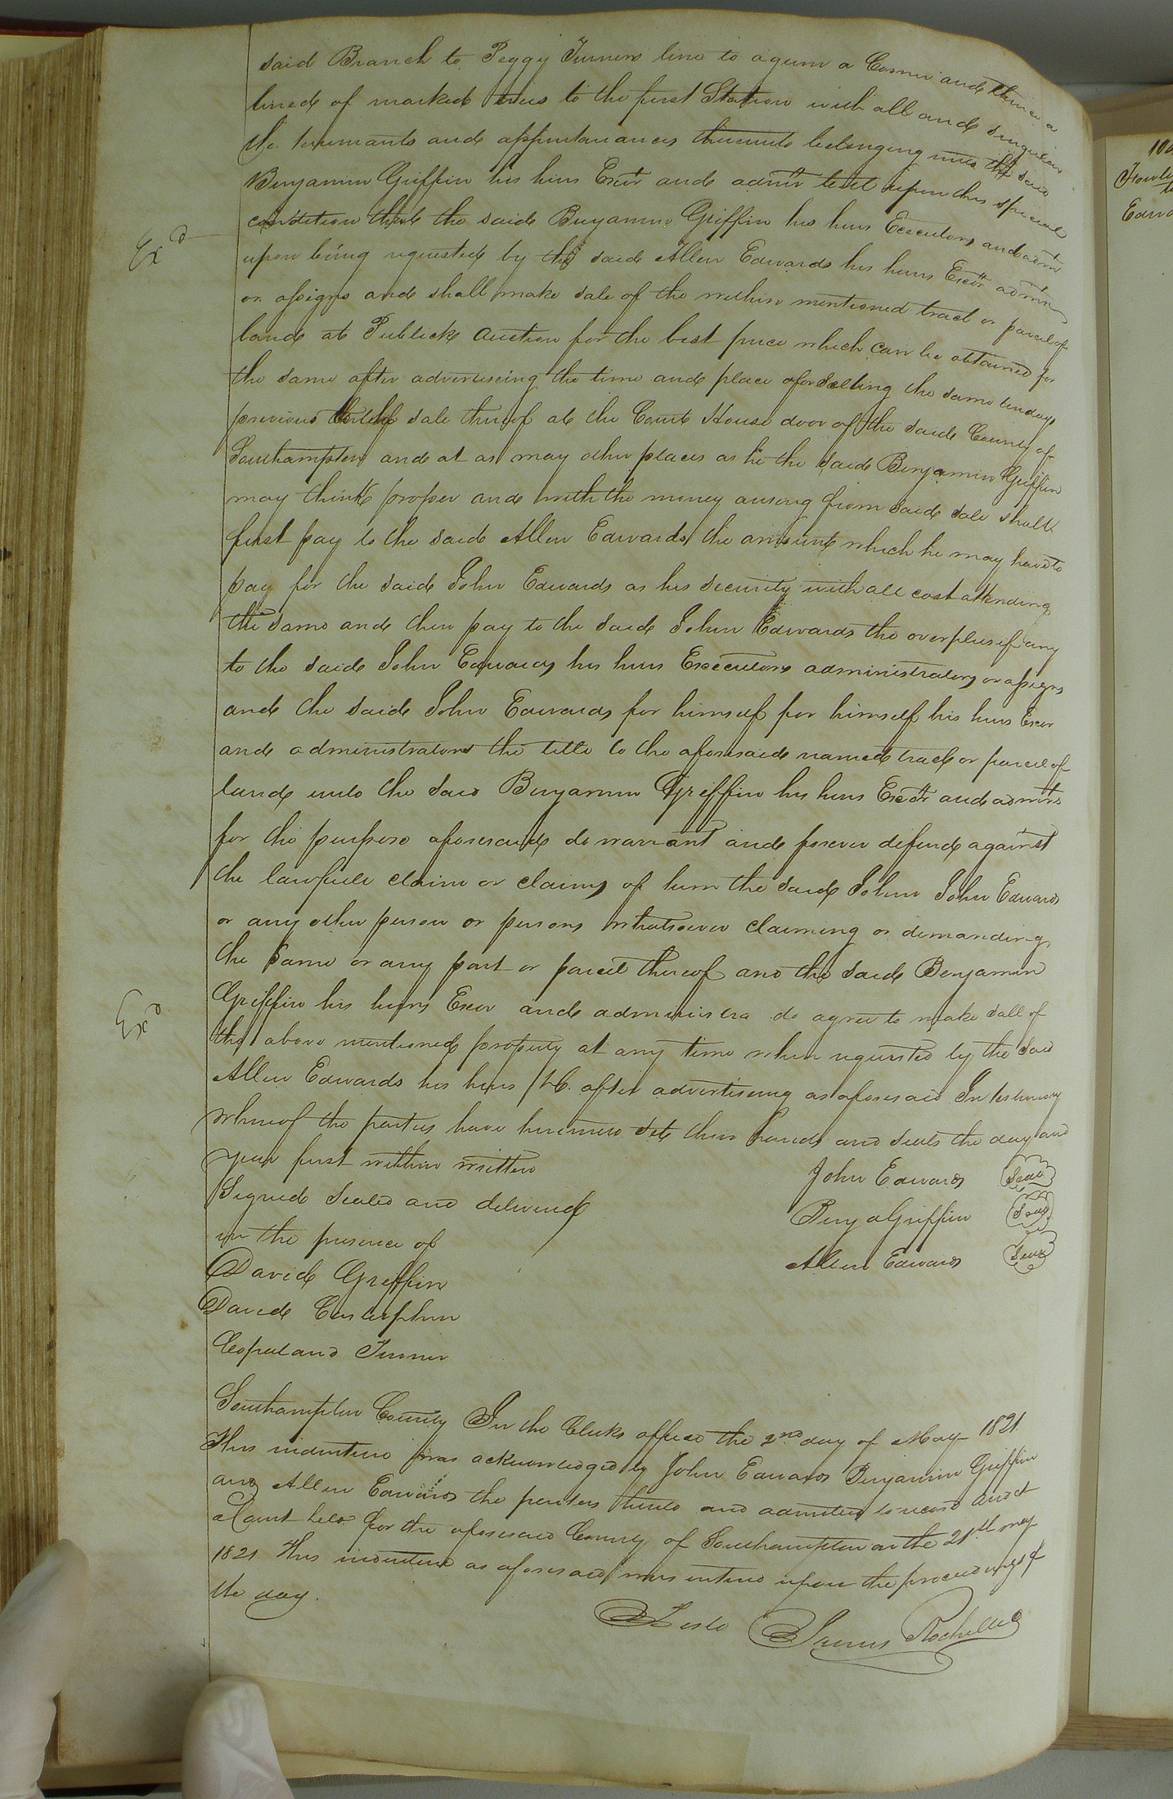 said Branch to Peggy Turners line to a gum a Corner and thence a
lined of marked trees to the first Station with all and singular
the tenements and appurtanances thereunto belonging unto the said
Benjamin Griffin his heirs Exors and admrs to it upon this special
Exd
condition that the said Benjamin Griffin his heirs Executors and admr
upon being requested by the said Allen Edwards his heirs Exors admrs
or assigns and shall make sale of the within mentioned tract or parcel of
land at Publick Auction for the best price which can be obtained for
the same after advertiseing the time and place of for Selling the same ten days
previous to the sale thereof at the Court House door of the said County of
Southampton and at as may other places as he the said Benjamin Griffin
may think proper and with the money ariseing from said sale shall
first pay to the said Allen Edwards the amount which he may have to
pay for the said John Edwards as his security with all cost attending
the same and then pay to the said John Edwards the overplus if any
to the said John Edwards his heirs Executors administrators or assigns
and the said John Edwards for himself for himself his heirs Exor
and administrators the title to the aforesaid named track or parcel of
land unto the said Benjamin Griffin his heirs Exors and admrs
for the purpose aforesaid do warrant and forever defend against
the lawfull claim or claims of him the said John John Edwards
or any other person or persons whatsoever claiming or demanding
the same or any part or parcel thereof and the said Benjamin
Exd
Griffin his heirs Exor and administra do agree to make sall of
the above mentioned property at any time when requested by the said
Allen Edwards his heirs &C. after advertiseing as aforesaid In testimony
whereof the parties have hereunto sets their hands and seals the day and
year first within written
John Edwards Seal
Signed Sealed and delivered
Benja Griffin Seal
in the presence of
Allen Edwards Seal
David Griffin
David
Copeland Turner
Southampton County In the Clerks office the 2nd day of May 1821
This indenture was acknowledged by John Edwards Benjamin Griffin
and Allen Edwards the parties hereto and admitted to record And at
a Court held for the aforesaid County of Southampton on the 21th may
1821 This indenture as aforesaid was entered upon the proceedings of
the day.
Teste James Rochelle